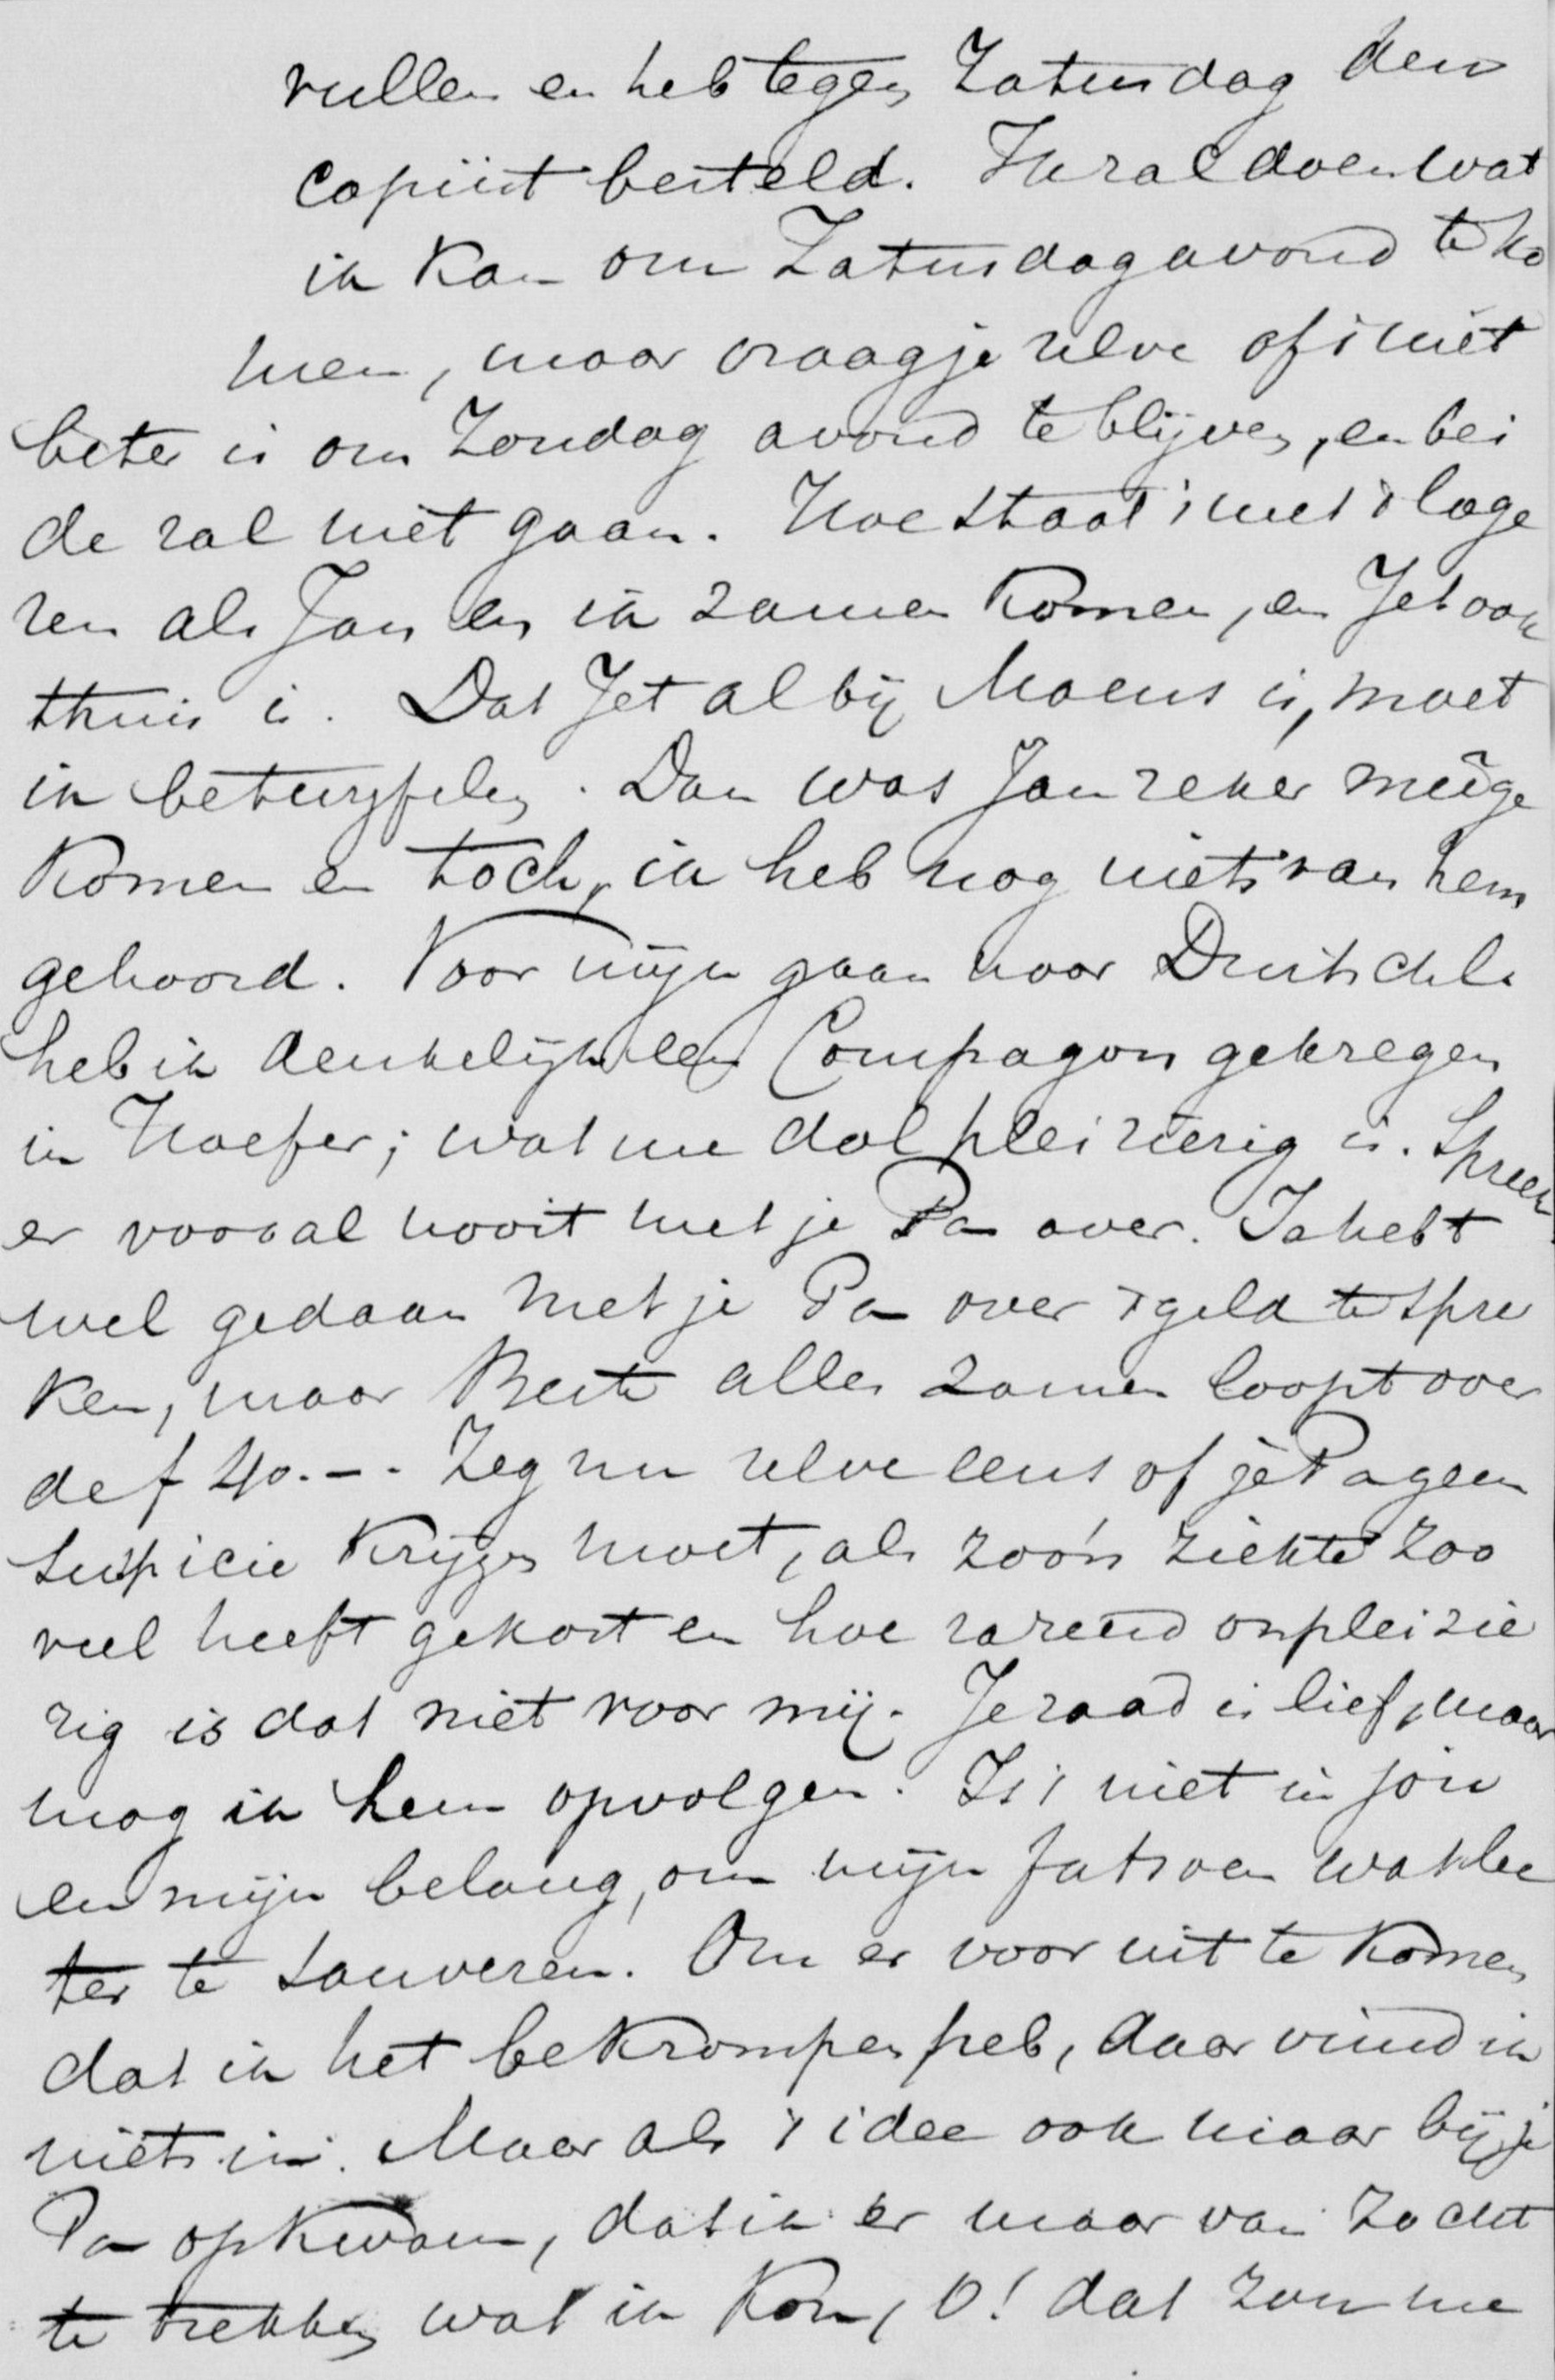 vullen en heb tegen Zaturdag den
copiïst besteld. Ik zal doen wat
ik kan om Zaturdagavond te ko
men, maar vraag je zelve of 't niet
beter is om Zondag avond te blijven, en bei
de zal niet gaan. Hoe staat 't met 't loge
ren als Jan en ik zamen komen, en Jet ook
thuis is. Dat Jet al bij Moens is, moet
ik betwijfelen. Dan was Jan zeker meege
komen en toch, ik heb nog niets van hem
gehoord. Voor mijn gaan naar Duitschl.
heb ik denkelijk een Compagnon gekregen
in Hoefer; wat me dol pleizierig is. Spreek
er vooral nooit met je Pa over. Je hebt
wel gedaan met je Pa over 't geld te spre
ken, maar Beste alles zamen loopt over
de f 40.-. Zeg nu zelve eens of je Pa geen
suspicie krijgen moet, als zoo'n ziekte zoo
veel heeft gekost en hoe razend onpleizie
rig is dat niet voor mij. Je raad is lief, maar
mag ik hem opvolgen. Is 't niet in jou
en mijn belang, om mijn fatsoen wat be
ter te sauveren. Om er voor uit te komen
dat ik het bekrompen heb, daar vind ik
niets in. Maar als 't idee ook maar bij je
Pa opkwam, dat ik er maar van zocht
te trekken wat ik kon, O! dat zou me